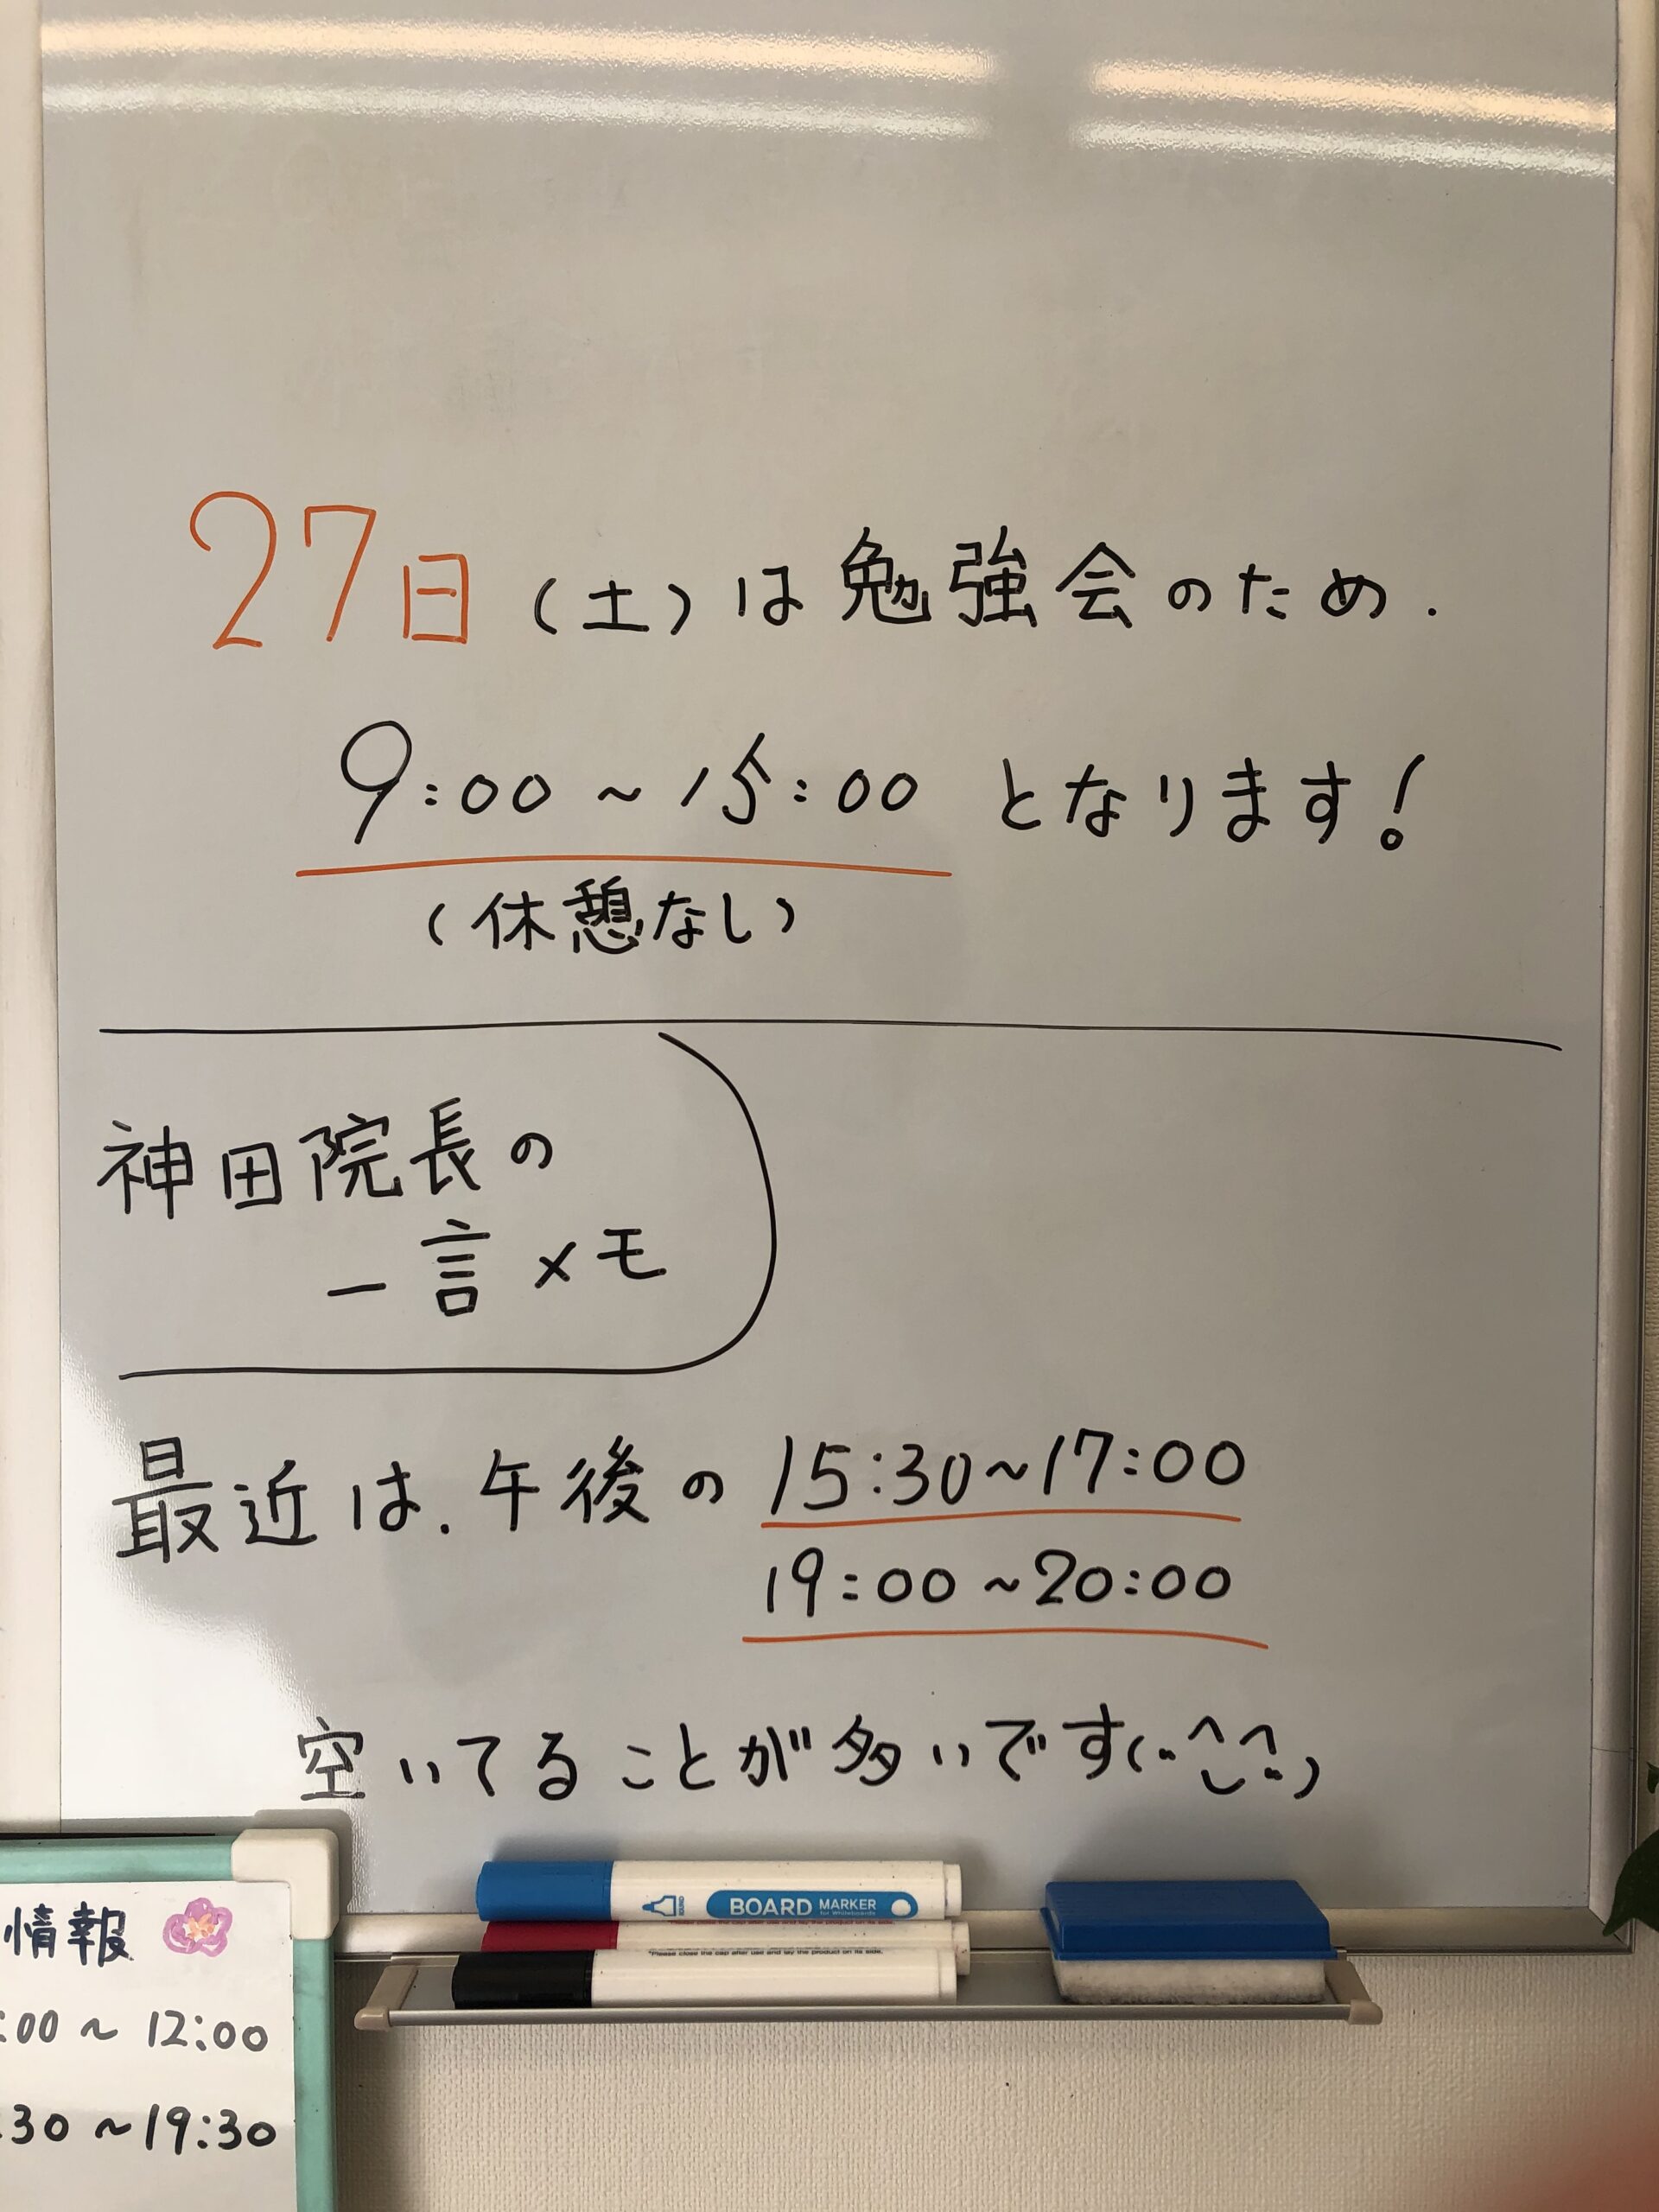 27日（土）は勉強会のため.
9:00～15:00 となります!
（休憩なし）
神田院長の
一言メモ
最近は.午後の 15:30～17:00
19:00～20:00
空いてることが多いです(¨^‿^¨)
BOARD MARKER
for Whiteboards
*Please close the cap after use and lay the product on its side.
情報
:00～12:00
:30～19:30